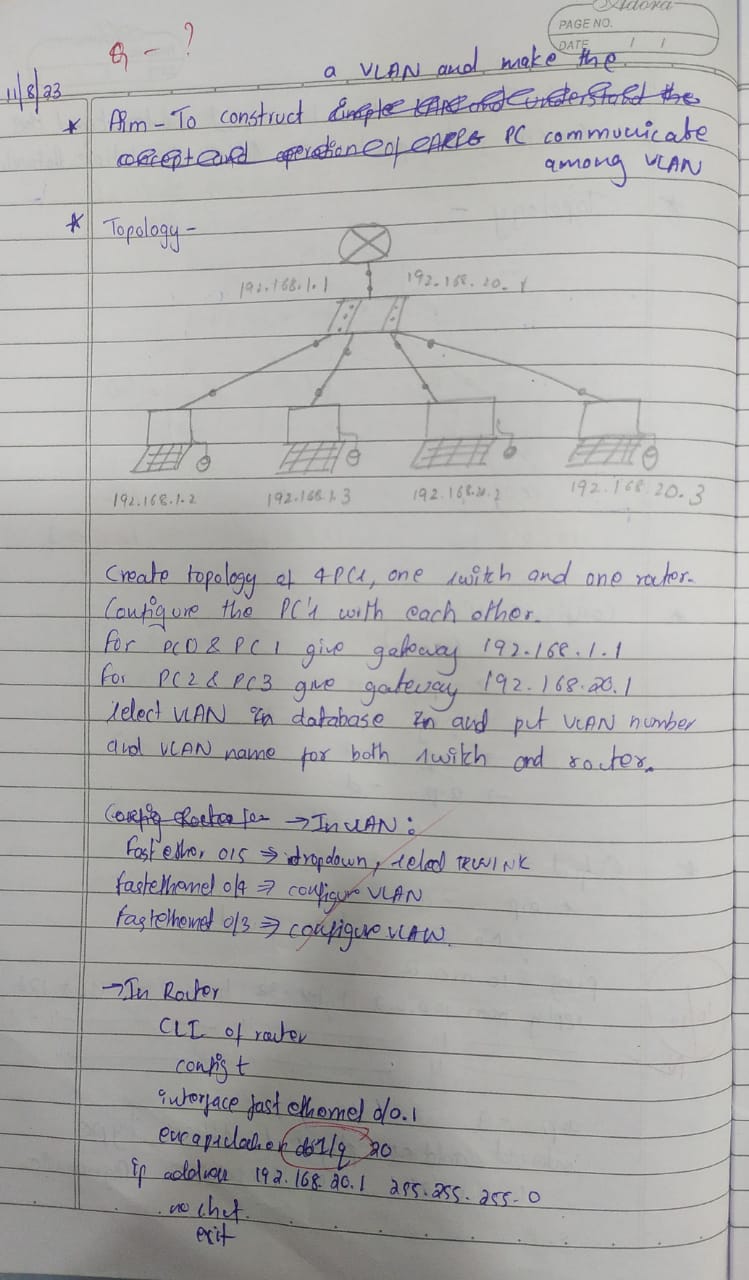 Adora
PAGE NO.
DATE / /
Q - ?
11/8/23
a VLAN and make the
* Aim - To construct Simple LAN and understand the
concept and operation of ARP PC communicate
among VLAN
* Topology -
192.168.1.1
192.168.20.1
192.168.1.2
192.168.1.3
192.168.20.2
192.168.20.3
Create topology of 4PCs, one switch and one router.
Configure the PC's with each other.
For PC0 & PC1 give gateway 192.168.1.1
For PC2 & PC3 give gateway 192.168.20.1
select VLAN in database and put VLAN number
and VLAN name for both switch and router.
Config Router for → In VLAN :
Fast ether 0/5 ⇒ dropdown, select TRUNK
fastethernet 0/4 ⇒ configure VLAN
Fastethernet 0/3 ⇒ configure VLAN
→ In Router
CLI of router
config t
interface fast ethernet 0/0.1
encapsulation dot1q 20
ip address 192.168.20.1 255.255.255.0
no shut
exit